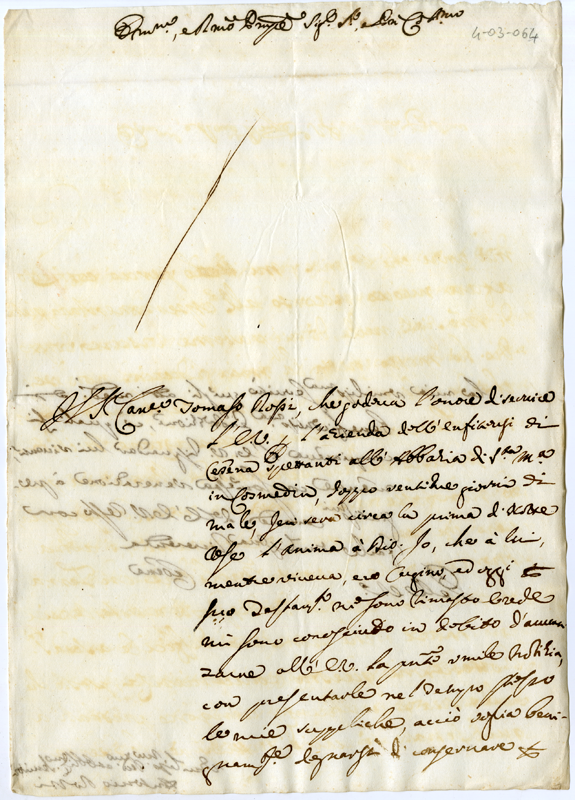 4-03-064
Em.mo, e R.mo Prñpe Sig.r
Il Sr. Canc.e Tomaso Rossi, che godeva l'onore di servire
l'E.V. p l'azienda dell'enfiteusi di
Cesena spettanti all'Abbazia di S.ta M.a
in Cosmedin, doppo ventidue giorni di
male jeri sera circa la prima di notte
rese l'Anima à Dio. Io, che à lui,
mentre viveva, ero Cugino, ed oggi p
suo Testam.to ne sono rimasto Erede
mi sono conosciuto in debito d'avvan
zarne all'E.V. la pñte umile notizia,
con presentarle nel tempo stesso
le mie suppliche, acciò voglia beni-
gnam.te degnarsi di conservare p